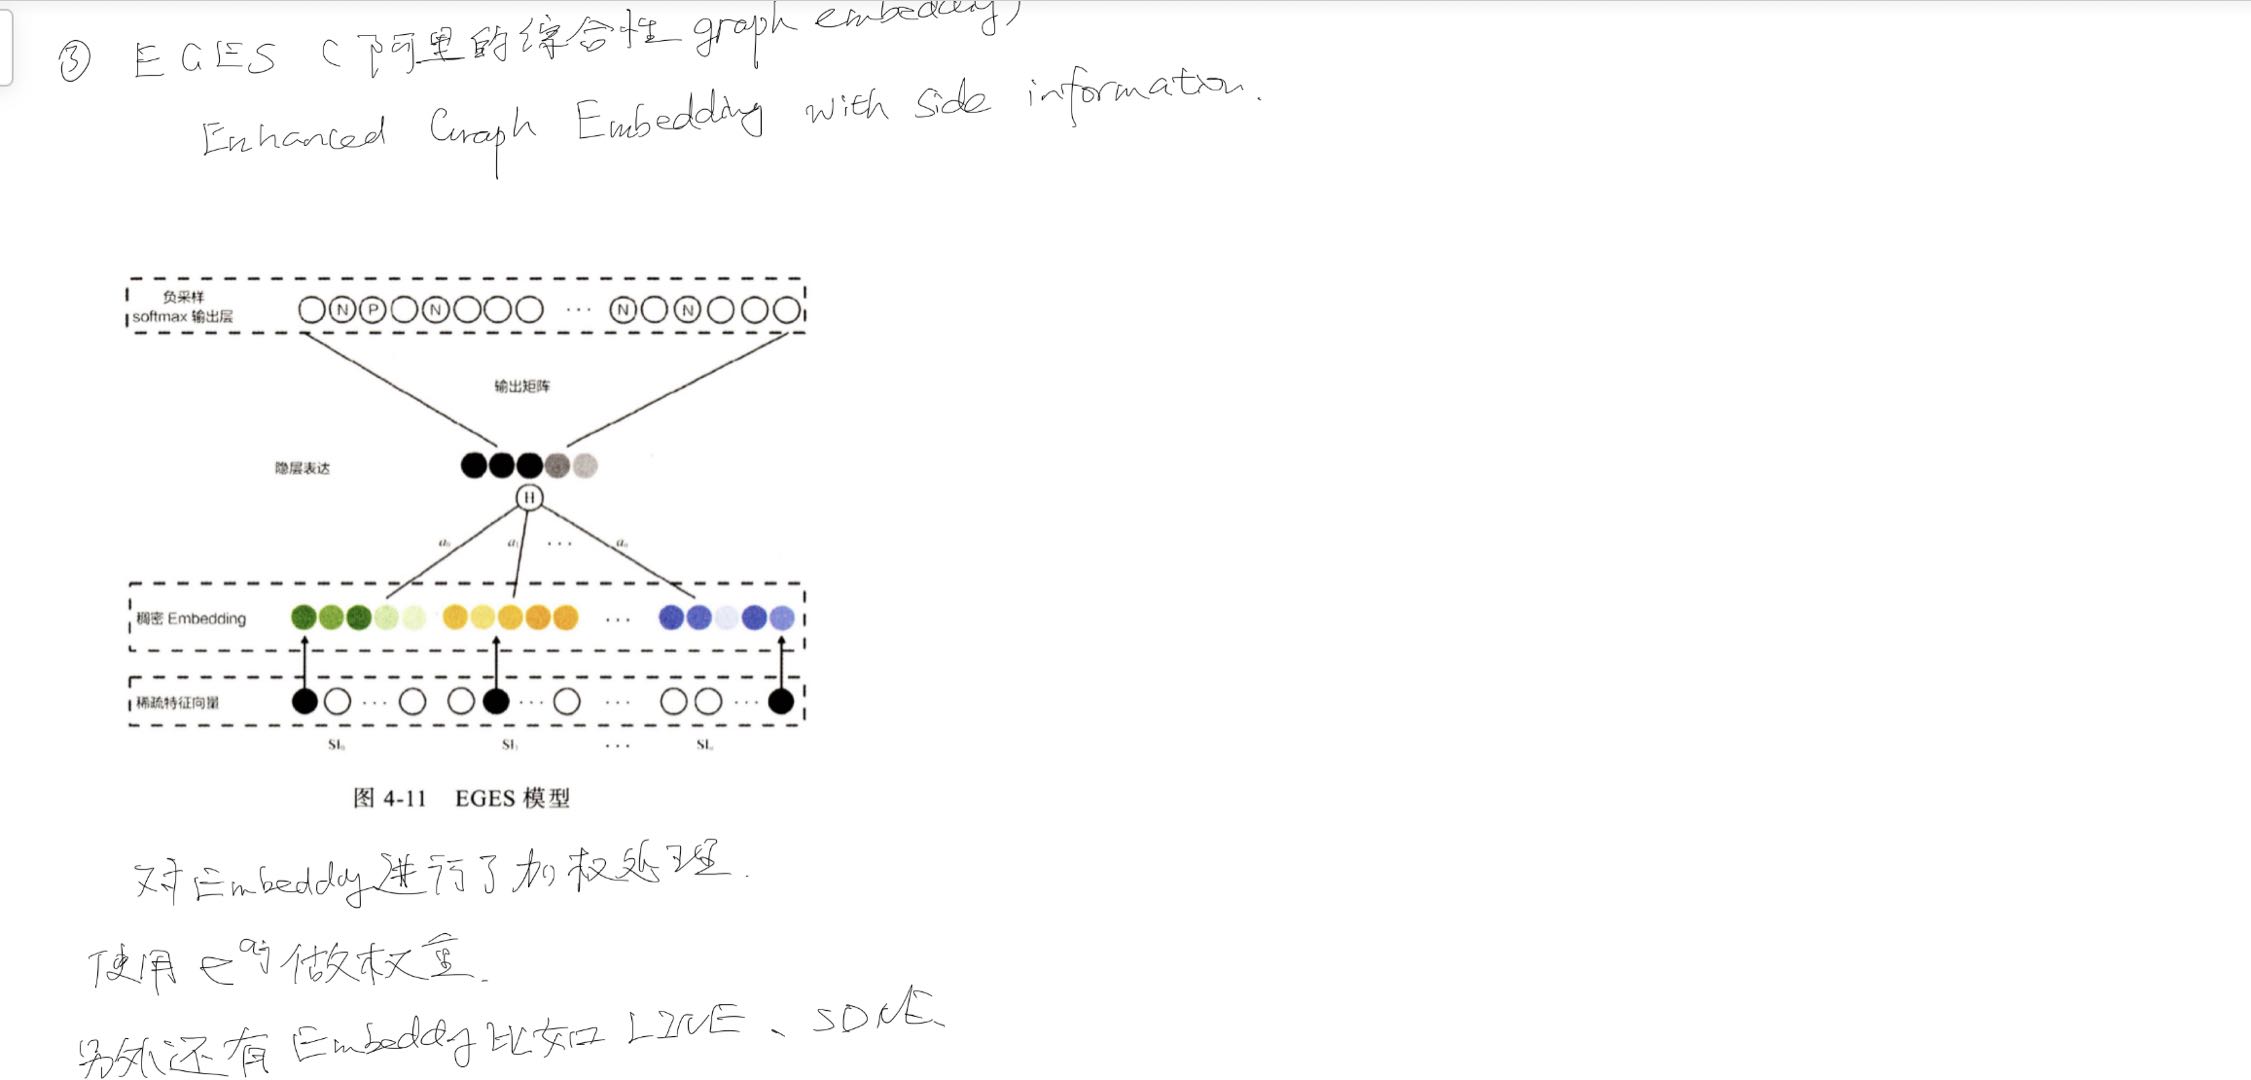 ③ EGES (阿里的综合性 graph embedding)
Enhanced Graph Embedding with side information.
负采样
softmax 输出层
N P N ... N N
输出矩阵
隐层表达
H
a₀ a₁ ... aₙ
稠密 Embedding ...
稀疏特征向量 ... ... ... ...
SI₀ SI₁ ... SIₙ
图 4-11 EGES 模型
对Embedding进行了加权处理.
使用 e^aj 做权重.
另外还有 Embedding 比如 LINE、SDNE、